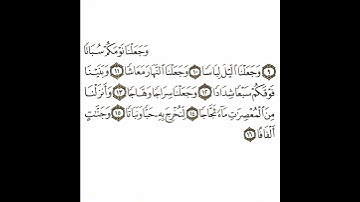 وَجَعَلْنَا نَوْمَكُمْ سُبَاتًا
٩ وَجَعَلْنَا الَّيْلَ لِبَاسًا ١٠ وَجَعَلْنَا النَّهَارَ مَعَاشًا ١١ وَبَنَيْنَا
فَوْقَكُمْ سَبْعًا شِدَادًا ١٢ وَجَعَلْنَا سِرَاجًا وَهَّاجًا ١٣ وَأَنزَلْنَا
مِنَ الْمُعْصِرَاتِ مَاءً ثَجَّاجًا ١٤ لِّنُخْرِجَ بِهِ حَبًّا وَنَبَاتًا ١٥ وَجَنَّاتٍ
أَلْفَافًا ١٦